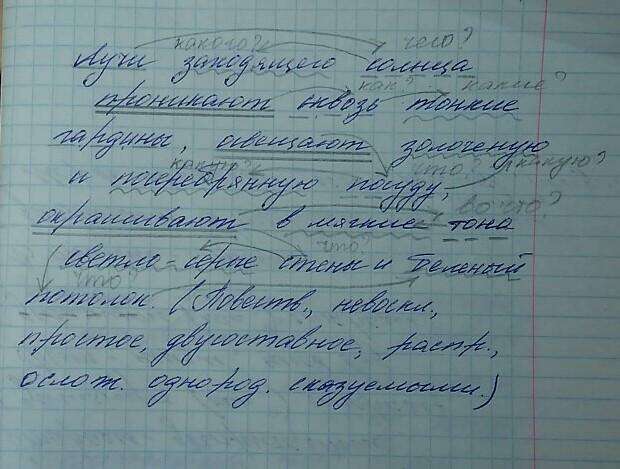 какого? чего?
Лучи заходящего солнца
как? какие?
проникают сквозь тонкие
гардины, освещают золоченую
какую? что? какую?
и посеребрянную посуду,
во что?
окрашивают в мягкие тона
что?
светло-серые стены и беленый
что?
потолок. (Повеств., невоскл.,
простое, двусоставное, распр.,
ослож. однород. сказуемыми.)